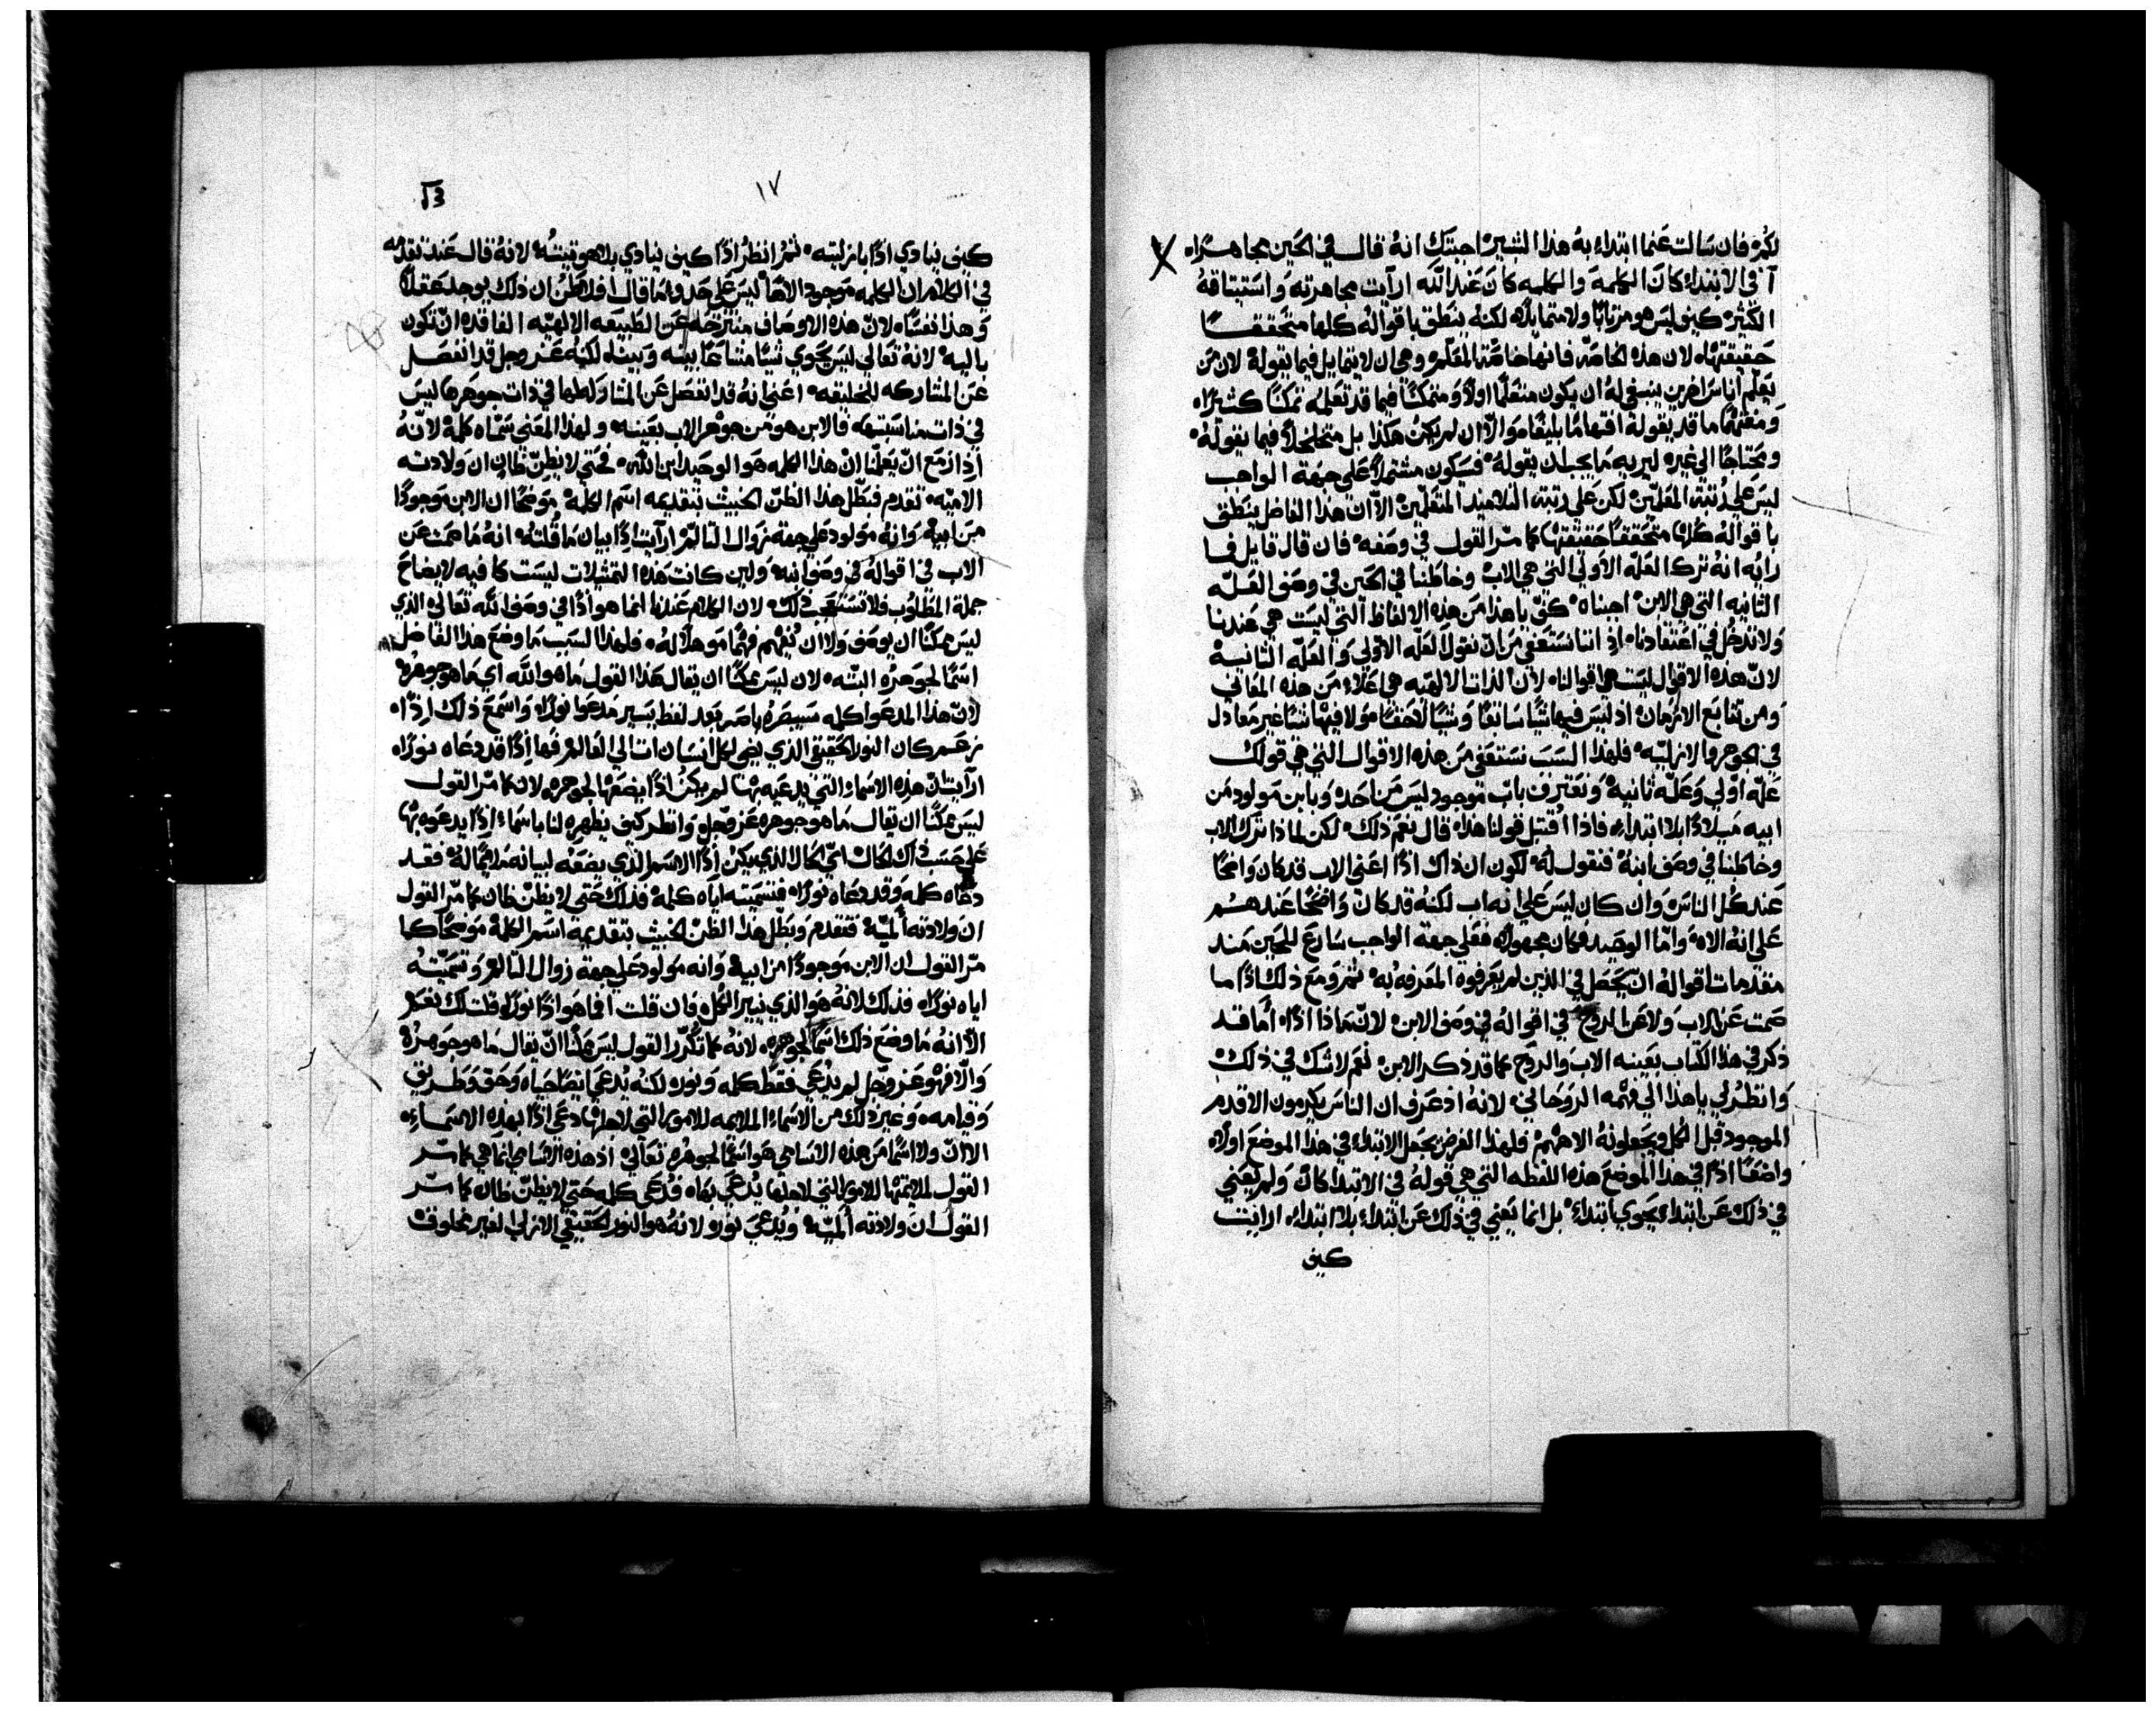 لكم فان سالت عنما ابتداء به هذا البشير اجبتك انه قال في الحين مجاهرًا
في الابتداء كان الكلمة والكلمه كان عند الله ارآيت مجاهرته واستيثاقه
الكثير كيف ليس هو مرتابًا ولا متمايلا لكنه ينطق باقواله كلها متحققًا
حقيقتها لان هذه الخاصه فانها خاصّة المعلم وهي ان لا يتمايل فيما يقوله لان من
يعلّم أناسًا اخرين ينبغي له ان يكون متعلمًا اولاً ومتمكنًا فيما قد تعلمه تمكنًا كثيرًا
ومفهمًا ما قد يقوله افهامًا بليغًا والّا ان لم يكن هكذا بل متخلخلاً فيما يقوله
ومحتاجًا الي غيره ليريه ما يجب ان يقوله فسيكون مشتملاً علي جهة الواجب
ليس علي رتبة المعلمين لكن علي رتبة التلاميد المتعلمين الا ان هذا الفاضل ينطق
باقواله كلها متحققًا حقيقتها كما مرّ القول في وصفه فان قال قايل فما
رايه انه ترك العلّه الاولي التي هي الاب وخاطبنا في الحين في وصف العلّه
الثانيه التي هي الابن اجبناه كفّ يا هذا من هذه الالفاظ التي ليست هي عندنا
ولا تدخل في اعتقادنا اذ اننا نستعفي من ان نقول العلّه الاولي والعلّه الثانية
لان هذه الاقوال ليست هي اقوالنا لان الذات الالهيه هي اعلاء من هذه المعاني
ومن تتابع الازمان اذ ليس فيها شيًا سابقًا وشيًا لاحقًا ولا فيها شيًا غير معادل
في الجوهر والازليّه فلهذا السبب نستعفي من هذه الاقوال التي هي قولك
علّه اولي وعلّه ثانيه ونعترف باب موجود ليس من احد وبابن مولود من
ابيه ميلادًا بلا ابتداء فاذا اقتبل قولنا هذا قال نعم ذلك لكن لماذا ترك الاب
وخاطبنا في وصف ابنه فنقول له لكون ان ذاك اذًا اعني الاب قد كان واضحًا
عند كل الناس وان كان ليس علي انه اب لكنه قد كان واضحًا عندهم
علي انه الاه وامّا الوحيد فكان مجهولًا فعلي جهة الواجب سارع للحين منذ
مقدمات اقواله ان يحصل في الذين لم يعرفوه المعرفه به ثم ومع ذلك اذًا ما
صمت عن الاب ولا عن الروح في اقواله في وصف الابن لان ماذا اذًا أما قد
ذكر في هذا الكتاب بعينه الاب والروح كما قد ذكر الابن نعم لا شك في ذلك
وانظر لي يا هذا الي فهمه الروحاني لانه اذ عرف ان الناس يكرمون الاقدم
الموجود قبل الكل ويجعلونه الاههم فلهذا الغرض يجعل الابتداء في هذا الموضع اولاً
واضعًا اذًا في هذا الموضع هذه اللفظه التي هي قوله في الابتدا كان ولم يعني
في ذلك عن ابتداء يحوي ابتداء بل انما يعني في ذلك عن ابتداء بلا ابتداء ارايت
كيف
١٧
كيف ينادي اذًا بازليته ثم انظر اذًا كيف ينادي بلاهوتيته لانه قال عند تقدمه
في الكلام ان الكلمه موجود الاهًا ليس علي حد وما قال افلاطن ان ذلك يوجد عقلاً
وهذا نفسًا لان هذه الاوصاف منتزحه عن الطبيعه الالهيّه الفاقده ان تكون
باليه لانه تعالي ليس يحوي شيًا مشاعًا بينه وبيننا لكنه عز وجل قد انفصل
عن المشاركه للخليقه اعني انه قد انفصل عن المشاركه لها في ذات جوهرها ليس
في ذات مناسبتها فالابن هو من جوهر الاب بعينه ولهذا المعني سماه كلمه لانه
اذ ازمع ان يعلّمنا ان هذا الكلمه هو الوحيد ابن الله فحتي لا يظن ظان ان ولادته
الاميّه تقدم فبطل هذا الظن الخبيث بتقديمه اسم الكلمة موضحًا ان الابن موجودًا
من ابيه وانه مولود علي جهة زوال التالم ارآيت اذًا بيان ما قلته انه ما صمت عن
الاب في اقواله في وصف ابنه ولين كانت هذه التمثيلات ليست كافيه لايضاح
جملة المطلوب فلا تستعجب ذلك لان الكلام عندنا انما هو اذًا في وصف الله تعالي الذي
ليس ممكنًا ان يوصف ولا ان يُفهم فهمًا موهلاً له فلهذا السبب ما وضع هذا الفاضل
اسمًا لجوهره البته لان ليس ممكنًا ان يقال هذا القول ما هو الله اي ما هو جوهره
لان هذا المدعوا كلمه سيبصره باصر بعد لفظ يسير مدعوا نورًا واسمع ذلك اذًا
زعم كان النور الحقيقي الذي يضي لكل انسان ات الي العالم فها اذًا قد دعاه نورًا
ارآيت ان هذه الاسماء التي يدعيه بها لم يكن اذًا يضعها لجوهره لان كما مرّ القول
ليس ممكنًا ان يقال ما هو جوهره عز وجل وانظر كيف يظهره لنا باسماء اذًا يدعوه بها
علي حسب ذاك الحال اي الحال الذي يكن اذًا الاسم الذي يضعه لبيانه ملايمًا له فقد
دعاه كلمه وقد دعاه نورًا فتسميته اياه كلمة فذلك حتي لا يظن ظان كما مرّ القول
ان ولادته ألميّه فتقدم وبطّل هذا الظن الخبيث بتقديمه اسم الكلمة موضحًا كما
مرّ القول ان الابن موجودًا من ابيه وانه مولود علي جهة زوال التالم وتسميته
اياه نورًا فذلك لانه هو الذي ينير الكل فان قلت افما هو اذًا نورًا قلت لك نعم
الا انه ما وضع ذلك اسمًا لجوهره لانه كما تكرّر القول ليس ممكنًا ان يقال ما هو جوهره
والا فهو عز وجل لم يُدعي فقط كلمه ونور لكنه يُدعي ايضًا حياه وحق وطريق
وقيامه وغير ذلك من الاسماء الملايمه للامور التي لاجلها دعي اذًا بهذه الاسماء
الا ان ولا اسمًا من هذه الاسامي هو اسمًا لجوهره تعالي اذ هذه الاسامي انما هي كما مرّ
القول لملايمتها للامور التي لاجلها يُدعي بها فدُعي كلمه حتي لا يظن ظان كما مرّ
القول ان ولادته ألميّه ويُدعي نور لانه هو النور الحقيقي الازلي الغير مخلوق